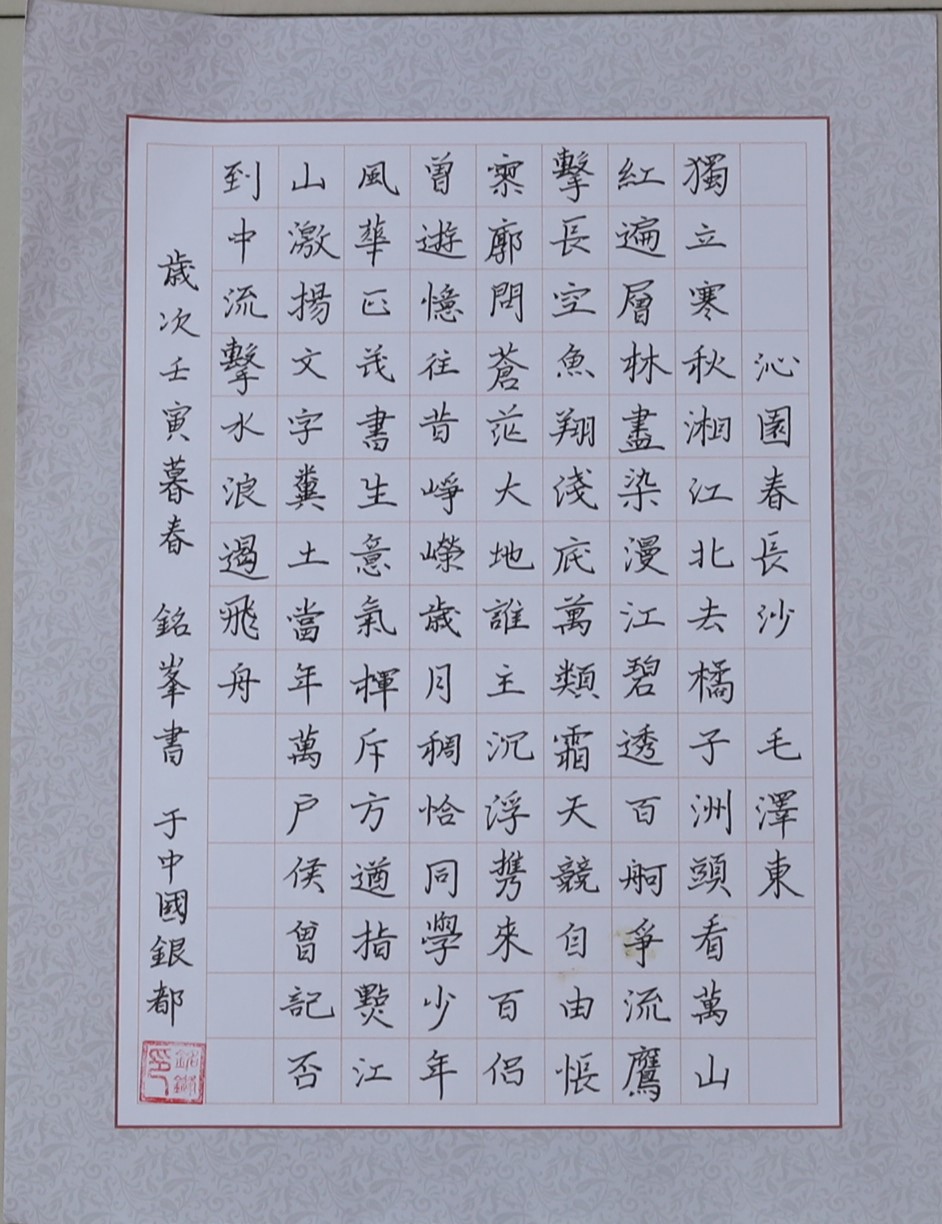 沁園春長沙 毛澤東
獨立寒秋湘江北去橘子洲頭看萬山
紅遍層林盡染漫江碧透百舸爭流鷹
擊長空魚翔淺底萬類霜天競自由悵
寥廓問蒼茫大地誰主沉浮攜來百侶
曾遊憶往昔崢嶸歲月稠恰同學少年
風華正茂書生意氣揮斥方遒指點江
山激揚文字糞土當年萬戶侯曾記否
到中流擊水浪遏飛舟
歲次壬寅暮春 銘峯書 于中國銀都